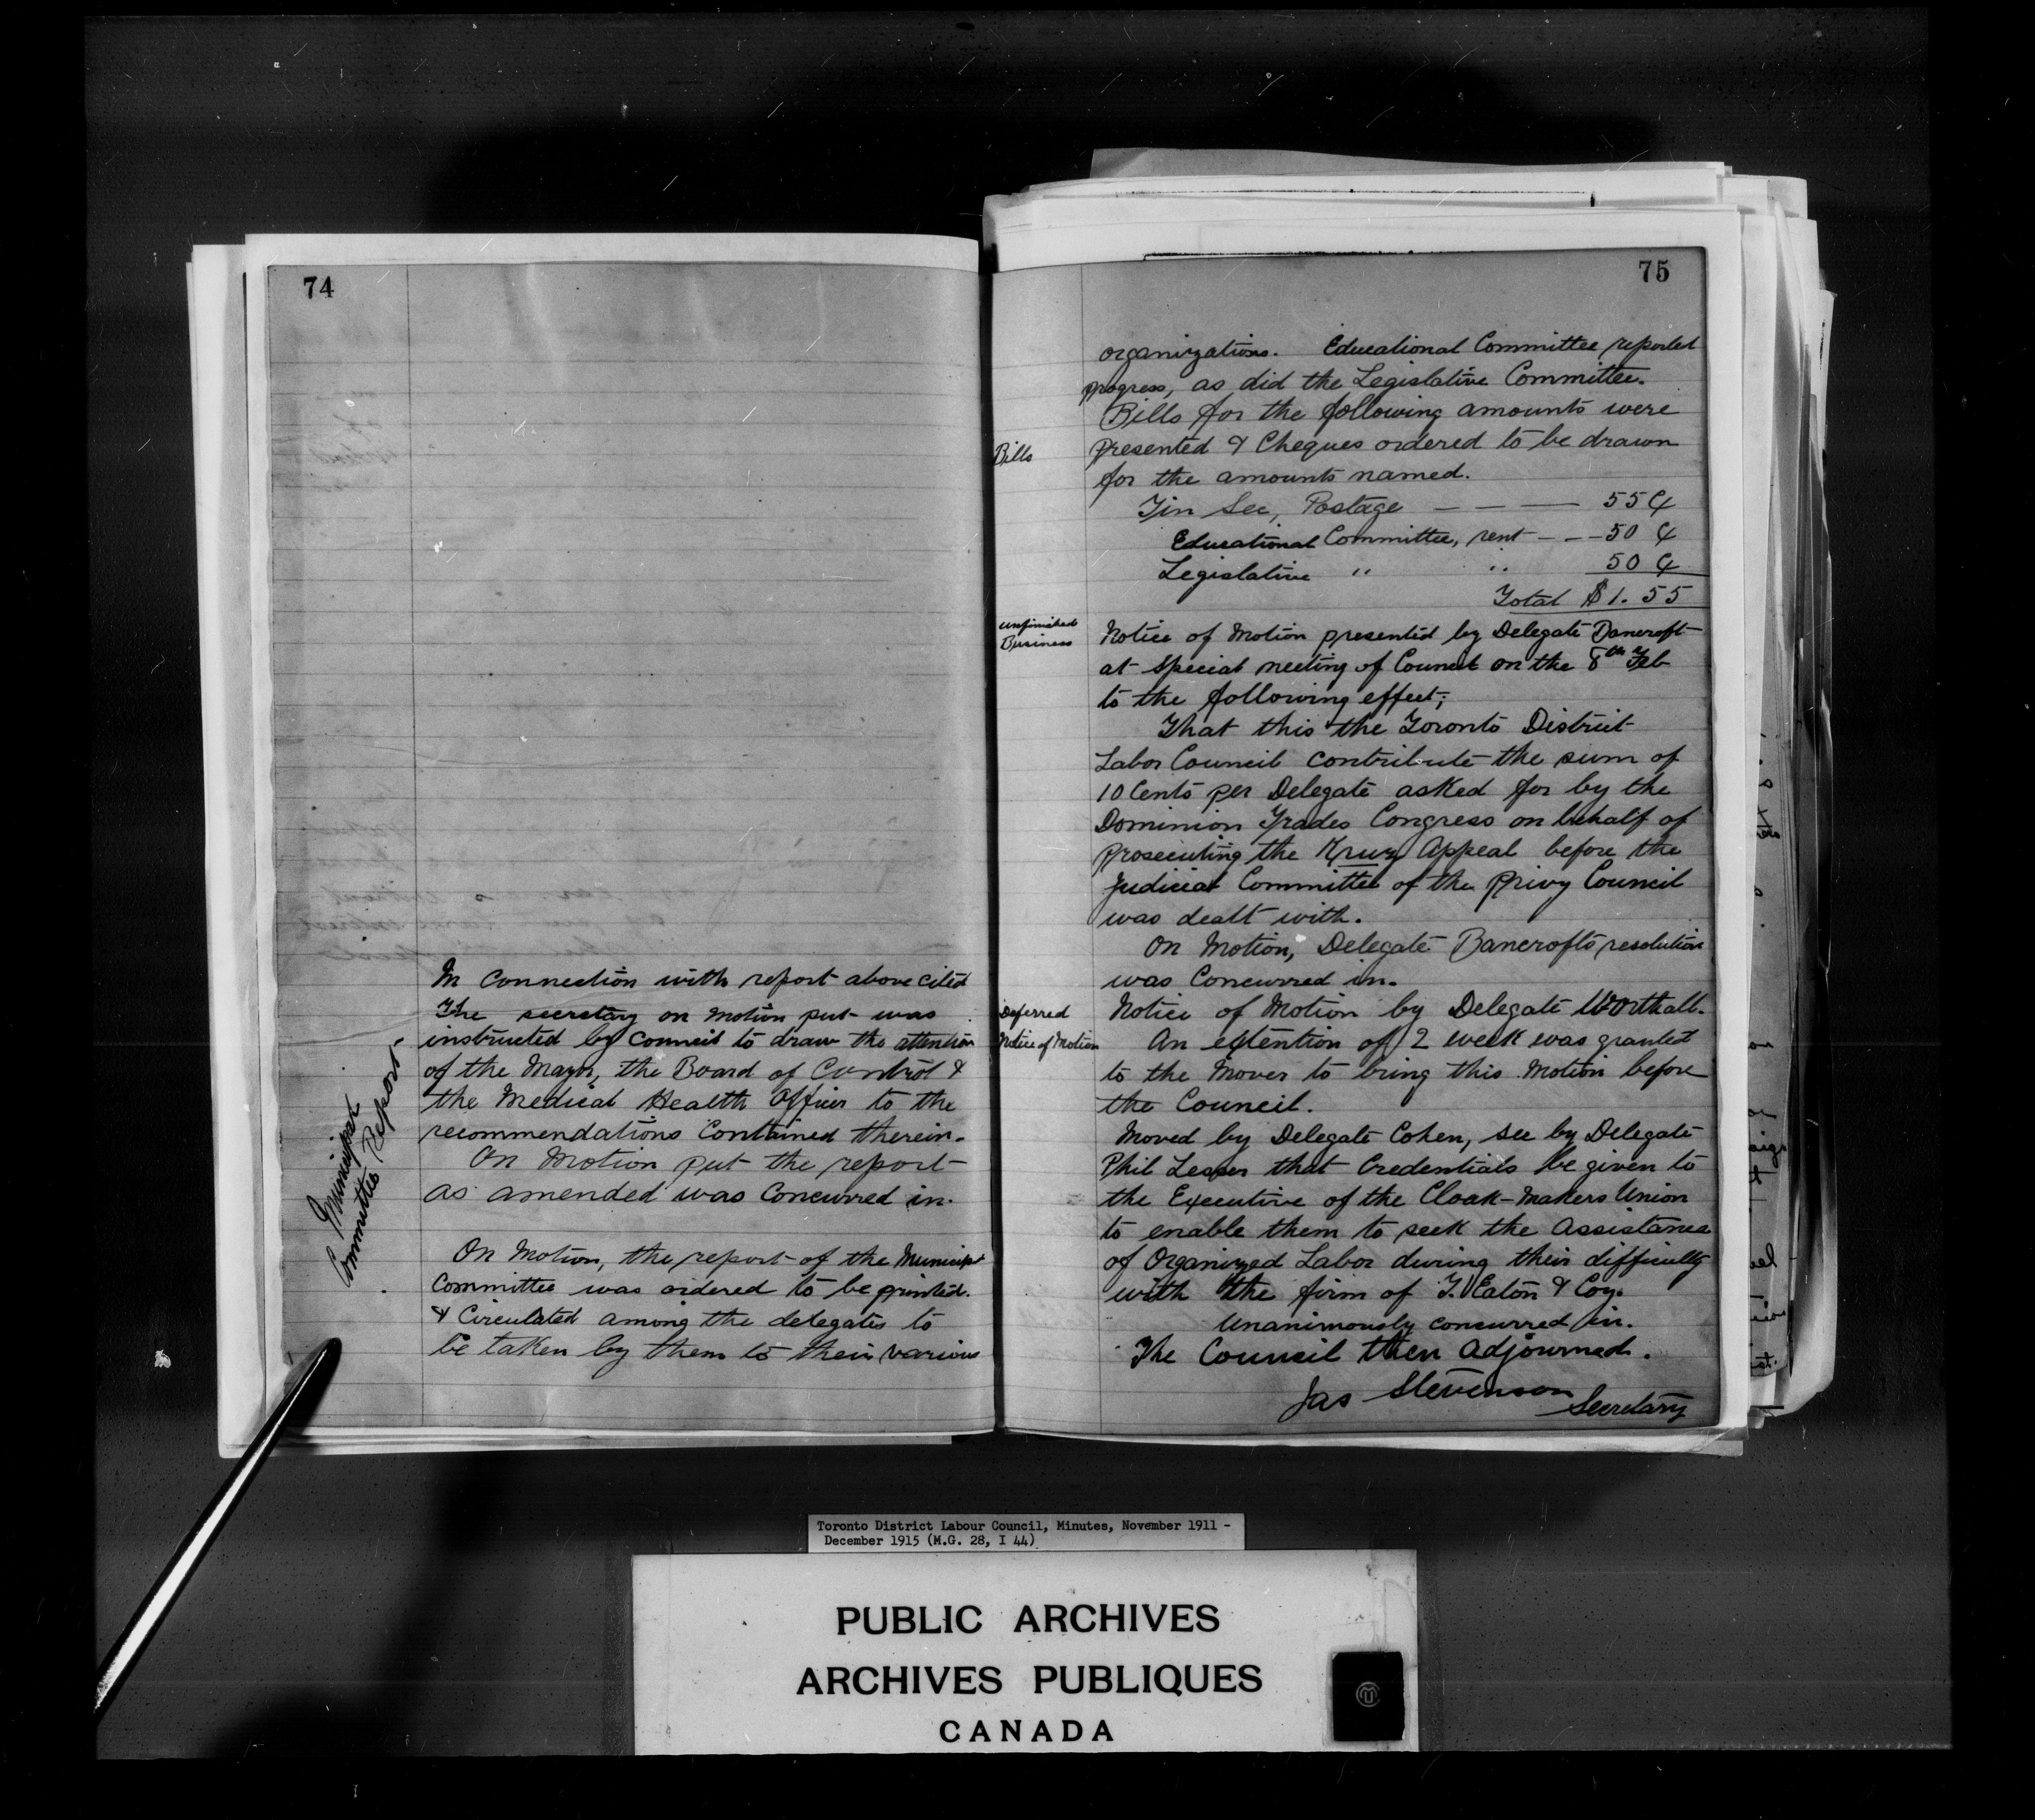 74
In Connection with report above cited
The secretary on motion put was
instructed by Council to draw the attention
of the Mayor, the Board of Control &
the Medical Health Officer to the
recommendations Contained therein.
On Motion put the report
as amended was Concurred in.
Municipal
Committee Report.
On Motion, the report of the Municipl
Committee was ordered to be printed.
& Circulated among the delegates to
be taken by them to their various
75
organizations. Educational Committee reported
progress, as did the Legislative Committee.
Bills for the following amounts were
Bills
presented & Cheques ordered to be drawn
for the amounts named.
Fin Sec, Postage — — — 55 ¢
Educational Committee, rent - - - 50 ¢
Legislative " " 50 ¢
Total $1.55
unfinished
Business
Notice of Motion presented by Delegate Bancroft
at special meeting of Council on the 8th Feb
to the following effect;
That this the Toronto District
Labor Council contribute the sum of
10 Cents per Delegate asked for by the
Dominion Trades Congress on behalf of
prosecuting the Kruz Appeal before the
Judicial Committee of the Privy Council
was dealt with.
On Motion, Delegate Bancrofts resolution
was Concurred in.
Deferred
Notice of Motion
Notice of Motion by Delegate Worthall.
An extention of 2 week was granted
to the Mover to bring this Motion before
the Council.
Moved by Delegate Cohen, sec by Delegate
Phil Lesser that Credentials be given to
the Executive of the Cloak-Makers Union
to enable them to seek the Assistance
of Organized Labor during their difficulty
with the firm of T. Eaton & Coy.
Unanimously concurred in.
The Council then Adjourned.
Jas Stevenson
Secretary
Toronto District Labour Council, Minutes, November 1911 -
December 1915 (M.G. 28, I 44)
PUBLIC ARCHIVES
ARCHIVES PUBLIQUES
CANADA